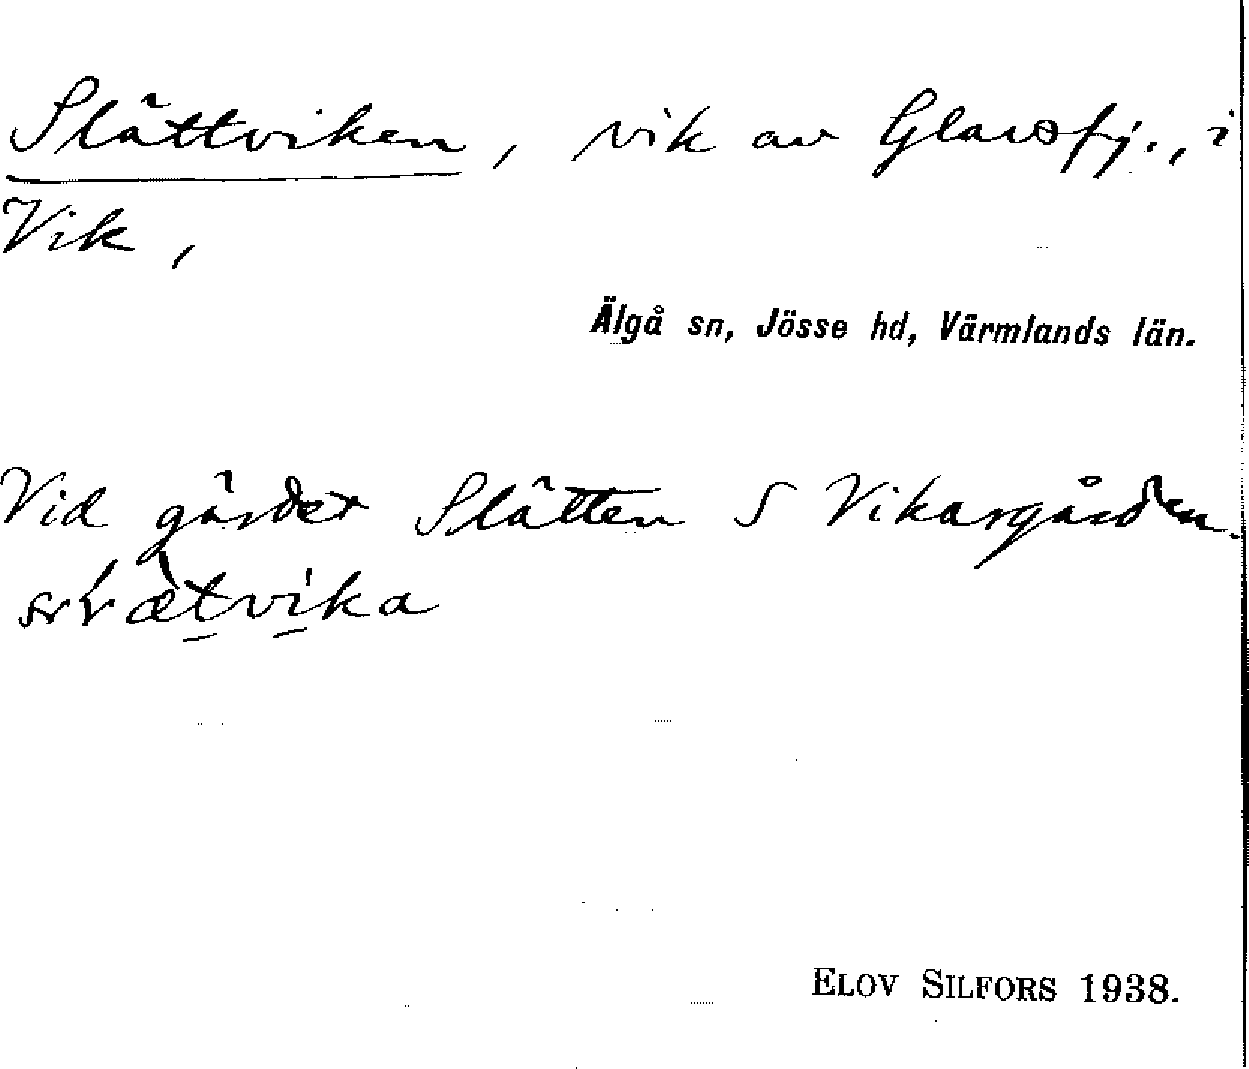 Slättviken, vik av Glavsfj., i
Vik,
Älgå sn, Jösse hd, Värmlands län.
Vid gärdet Slätten S Vikargården.
ELOV SILFORS 1938.